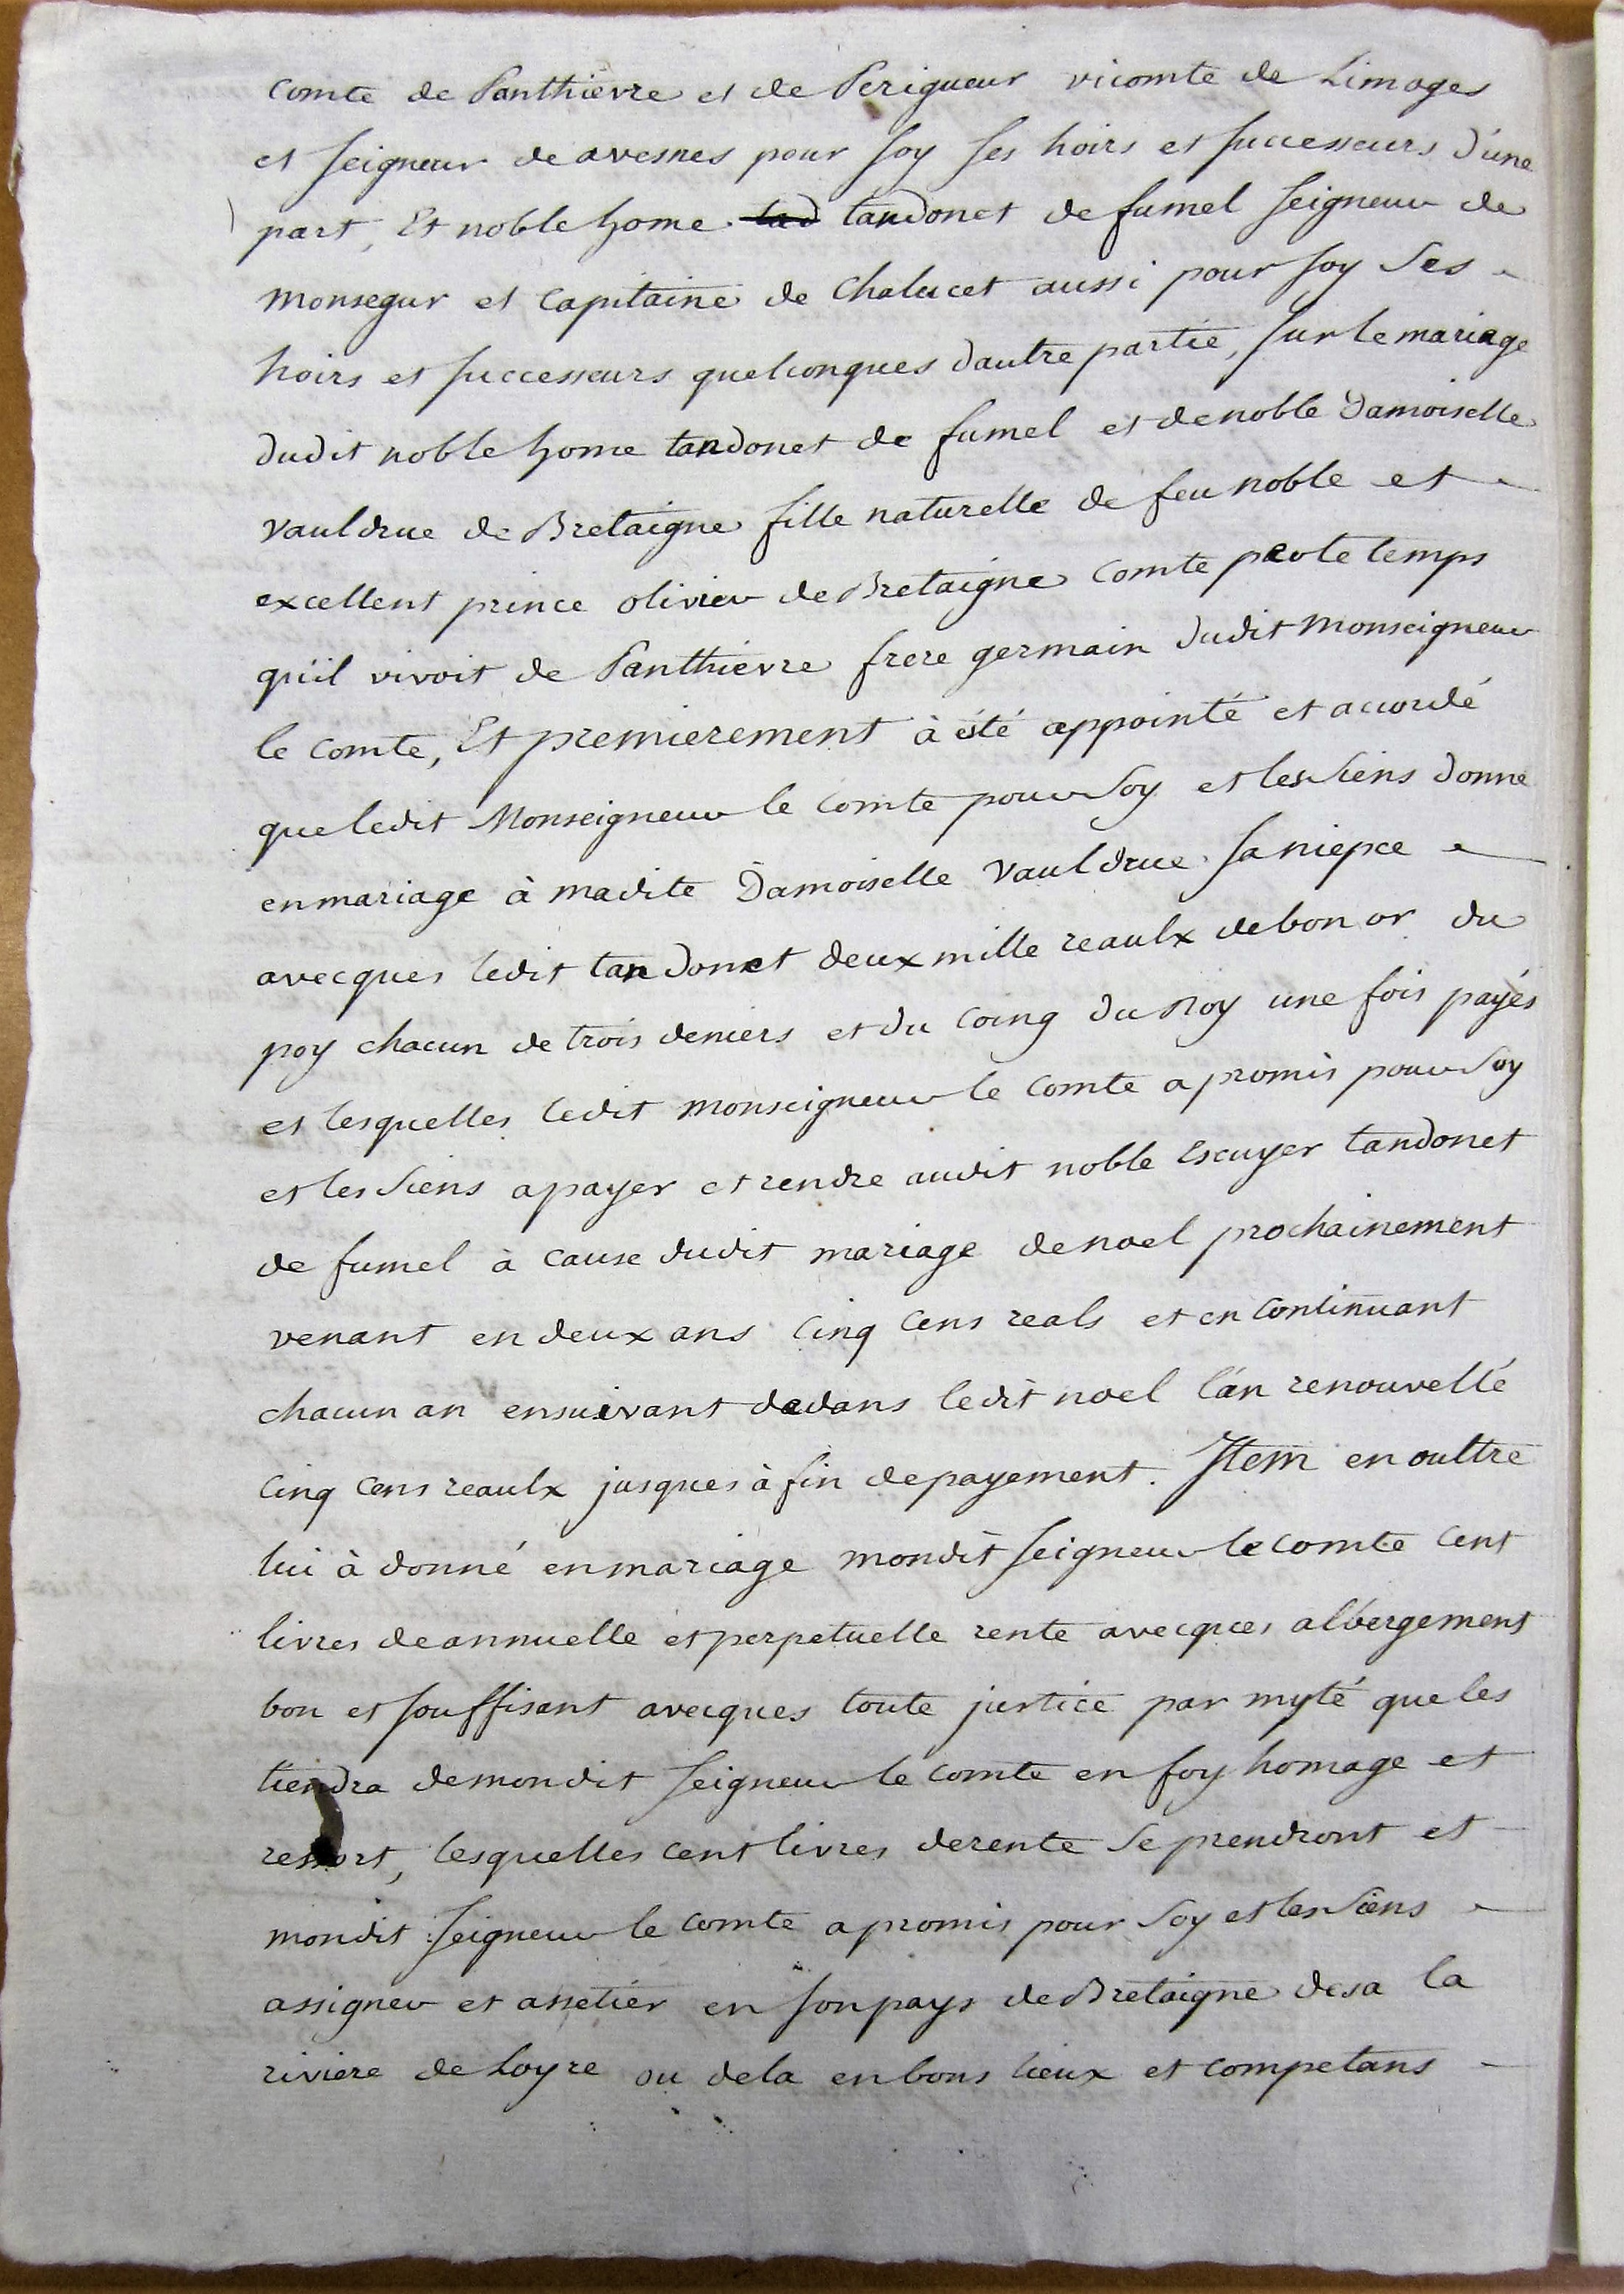 comte de Panthievre et de Perigueur vicomte de Limoges
et seigneur de avesnes pour soy ses hoirs et successeurs d'une
part, Et noble home tad tandonet de fumel seigneur de
monsegur et capitaine de chalucet aussi pour soy ses
hoirs et successeurs quelconques dautre partie, sur le mariage
dudit noble home tandonet de fumel et de noble Damoiselle
vauldrue de Bretaigne fille naturelle de feu noble et
excellent prince olivier de Bretaigne comte par le temps
qu'il vivoit de Panthievre frere germain dudit Monseigneur
le comte, Et premierement à été appointé et accordé
que ledit Monseigneur le comte pour soy et les siens donne
en mariage à madite Damoiselle vauldrue sa niepce
avecques ledit tandonet deux mille reaulx de bon or du
poy chacun de trois deniers et du coing du Roy une fois payés
et lesquelles ledit monseigneur le comte a promis pour soy
et les siens a payer et rendre audit noble Escuyer tandonet
de fumel à cause dudit mariage de noel prochainement
venant en deux ans cinq cens reals et en continuant
chacun an ensuivant dedans ledit noel l'an renouvellé
cinq cens reaulx jusques à fin de payement. Item en oultre
lui à donné en mariage mondit seigneur le comte cent
livres de annuelle et perpetuelle rente avecques albergement
bon et souffisant avecques toute justice par myté que les
tiendra de mondit seigneur le comte en foy homage et
ressort, lesquelles cent livres de rente se prendront et
mondit seigneur le comte a promis pour soy et les siens
assigner et assetier en son pays de Bretaigne desa la
riviere de Loyre ou dela en bons lieux et competans